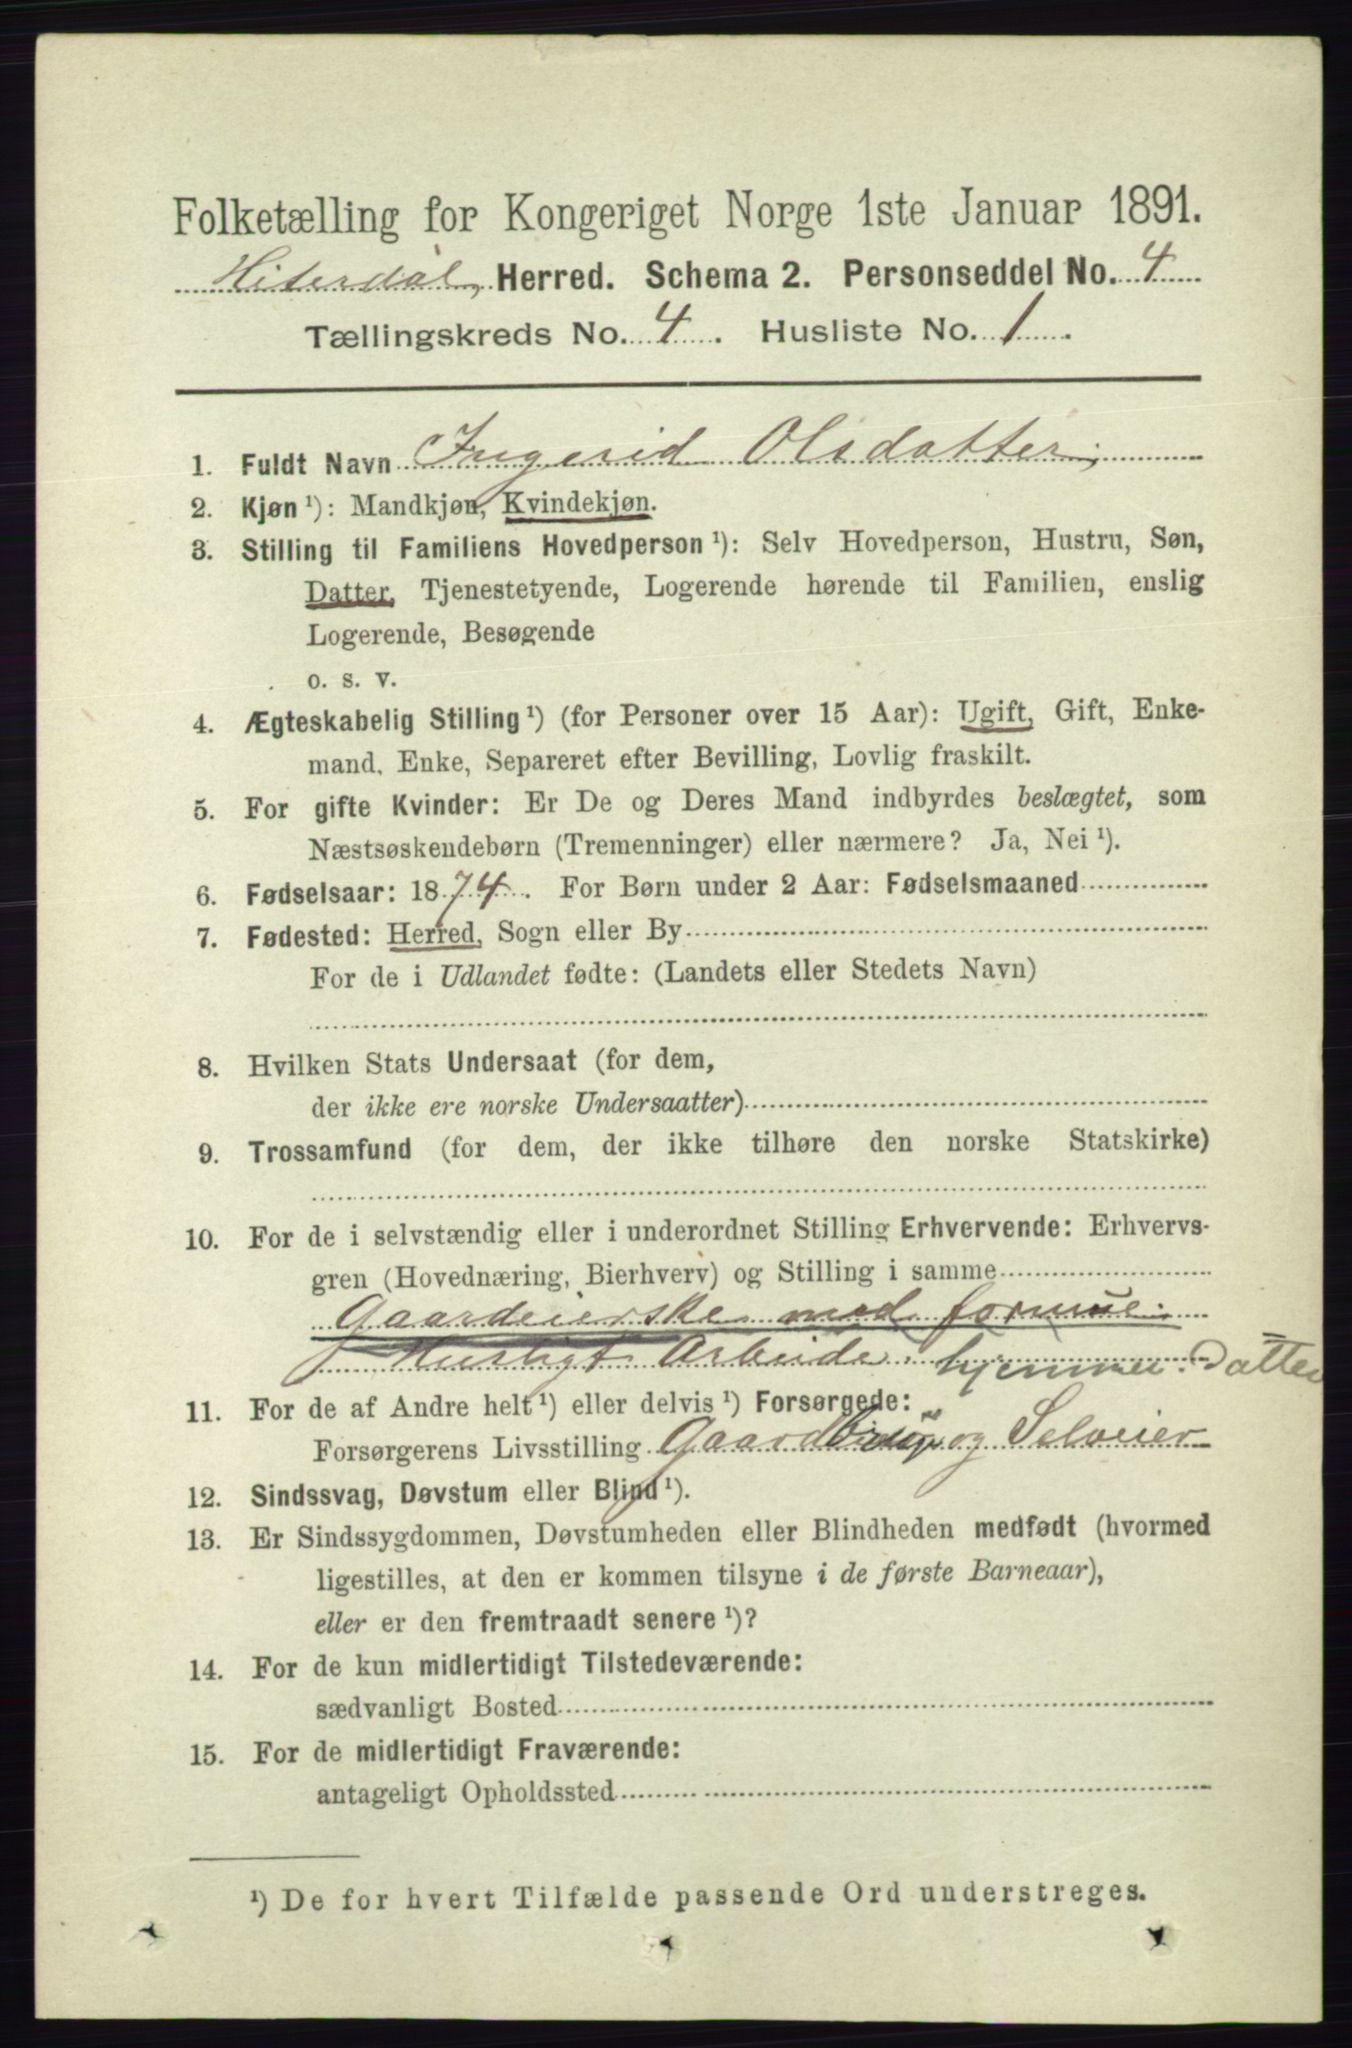 Folketælling for Kongeriget Norge 1ste Januar 1891.
Hiterdal, Herred. Schema 2. Personseddel No. 4
Tællingskreds No. 4. Husliste No. 1.
1. Fuldt Navn Ingerid Olsdatter,
2. Kjøn ¹): Mandkjøn, Kvindekjøn.
3. Stilling til Familiens Hovedperson ¹): Selv Hovedperson, Hustru, Søn,
Datter, Tjenestetyende, Logerende hørende til Familien, enslig
Logerende, Besøgende
o. s. v.
4. Ægteskabelig Stilling ¹) (for Personer over 15 Aar): Ugift, Gift, Enke-
mand, Enke, Separeret efter Bevilling, Lovlig fraskilt.
5. For gifte Kvinder: Er De og Deres Mand indbyrdes beslægtet, som
Næstsøskendebørn (Tremenninger) eller nærmere? Ja, Nei ¹).
6. Fødselsaar: 1874. For Børn under 2 Aar: Fødselsmaaned
7. Fødested: Herred, Sogn eller By
For de i Udlandet fødte: (Landets eller Stedets Navn)
8. Hvilken Stats Undersaat (for dem,
der ikke ere norske Undersaatter)
9. Trossamfund (for dem, der ikke tilhøre den norske Statskirke)
10. For de i selvstændig eller i underordnet Stilling Erhvervende: Erhvervs-
gren (Hovednæring, Bierhverv) og Stilling i samme
Gaardeierske med formue.
Husligt Arbeide. hjemmev. Datter
11. For de af Andre helt ¹) eller delvis ¹) Forsørgede:
Forsørgerens Livsstilling Gaardbrug og Selveier
12. Sindssvag, Døvstum eller Blind ¹).
13. Er Sindssygdommen, Døvstumheden eller Blindheden medfødt (hvormed
ligestilles, at den er kommen tilsyne i de første Barneaar),
eller er den fremtraadt senere ¹)?
14. For de kun midlertidigt Tilstedeværende:
sædvanligt Bosted
15. For de midlertidigt Fraværende:
antageligt Opholdssted
¹) De for hvert Tilfælde passende Ord understreges.